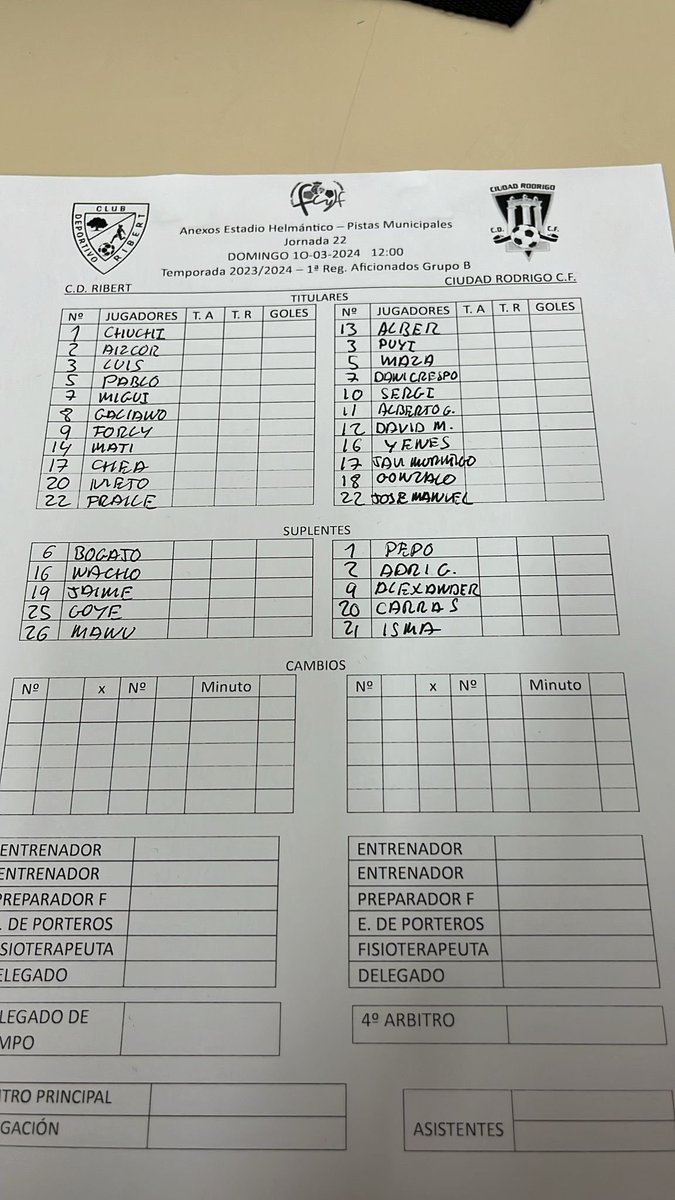 CLUB
DEPORTIVO RIBERT
fcylf
CIUDAD RODRIGO
C.D. C.F.
Anexos Estadio Helmántico – Pistas Municipales
Jornada 22
DOMINGO 1O-03-2024 12:00
Temporada 2023/2024 – 1ª Reg. Aficionados Grupo B
C.D. RIBERT CIUDAD RODRIGO C.F.
TITULARES
Nº JUGADORES T. A T. R GOLES Nº JUGADORES T. A T. R GOLES
1 CHUCHI 13 ALBER
2 AIZCOR 3 PUYI
3 LUIS 5 MAZA
5 PABLO 7 DANI CRESPO
7 MIGUI 10 SERGI
8 GALIANO 11 ALBERTO G.
9 FORCY 12 DAVID M.
14 MATI 16 YENES
17 CHEA 17 JAVI MORIÑIGO
20 NIETO 18 GONZALO
22 FRAILE 22 JOSE MANUEL
SUPLENTES
6 BOGAJO 1 PEPO
16 NACHO 2 ADRI G.
19 JAIME 9 ALEXANDER
25 GOYE 20 CARRAS
26 MANU 21 ISMA
CAMBIOS
Nº x Nº Minuto Nº x Nº Minuto
ENTRENADOR ENTRENADOR
ENTRENADOR ENTRENADOR
PREPARADOR F PREPARADOR F
. DE PORTEROS E. DE PORTEROS
SIOTERAPEUTA FISIOTERAPEUTA
ELEGADO DELEGADO
LEGADO DE 4º ARBITRO
MPO
TRO PRINCIPAL
GACIÓN ASISTENTES